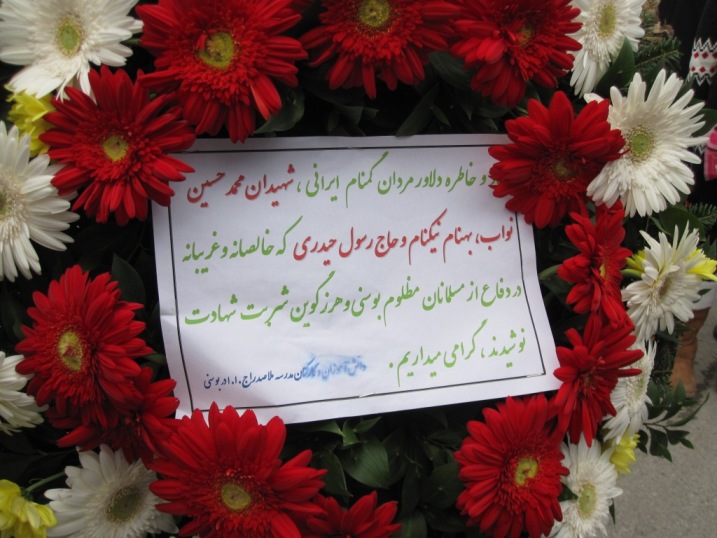 و خاطره دلاور مردان گمنام ایرانی ، شهیدان محمد حسین
نواب، بهنام نیکنام و حاج رسول حیدری که خالصانه و غریبانه
در دفاع از مسلمانان مظلوم بوسنی و هرزگوین شربت شهادت
نوشیدند ، گرامی میداریم .
دانش آموزان و کارکنان مدرسه ملاصدرا ج.ا.ا. در بوسنی